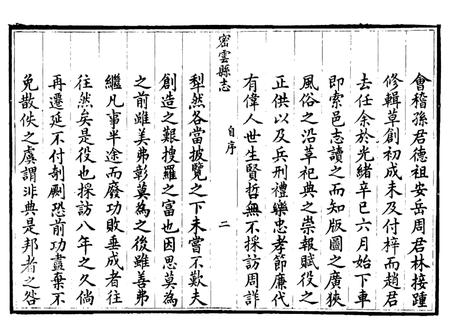 會稽孫君德祖安岳周君林接踵
修輯草創初成未及付梓而趙君
去任余於光緒辛巳六月始下車
即索邑志讀之而知版圖之廣狹
風俗之沿革祀典之崇報賦役之
正供以及兵刑禮樂忠孝節廉代
有偉人世生賢哲無不採訪周詳
密雲縣志
自序
二
犁然各當披覽之下未嘗不歎夫
創造之艱搜羅之富也因思莫為
之前雖美弗彰莫為之後雖善弗
繼凡事半途而廢功敗垂成者往
往然矣是役也採訪八年之久倘
再遷延不付剞劂恐前功盡棄不
免散佚之虞謂非典是邦者之咎